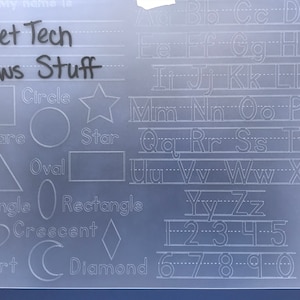 my name is
et Tech
ws Stuff
Circle
Star
Oval
Rectangle
Crescent
Diamond
Bb Cc Dd
Ff Gg H
Ii Jj Kk L
Mm Nn Oo P
Qq Rr Ss T
Uu Vv Ww X
Yy Zz
1 2 3 4 5
6 7 8 9 0